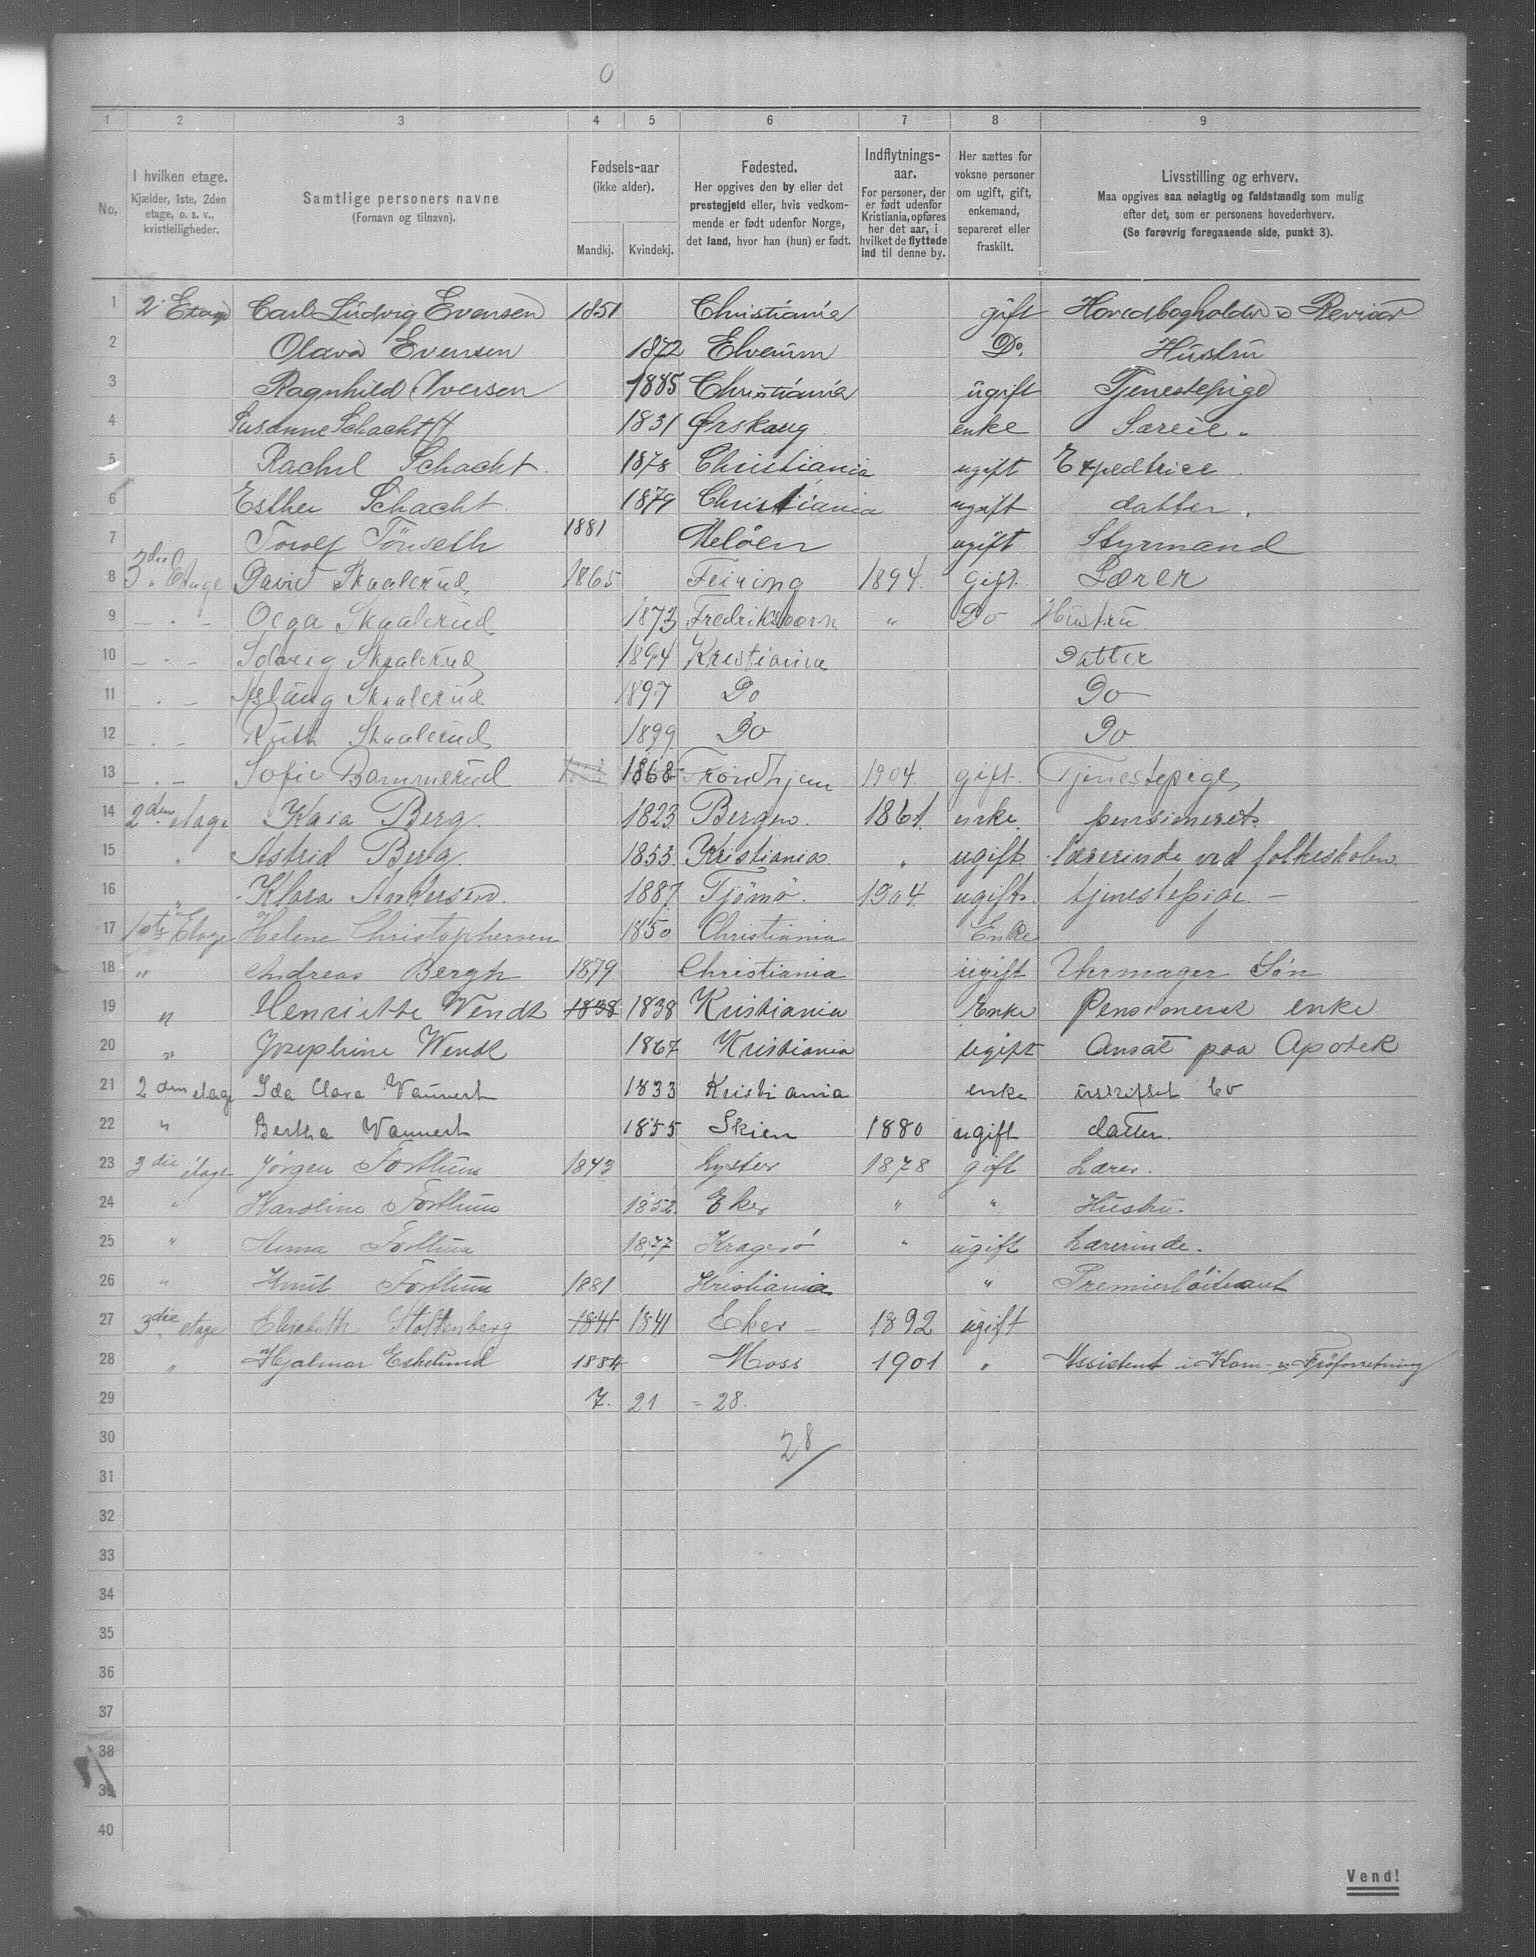 0
1 2 3 4 5 6 7 8 9
No.
I hvilken etage.
Kjælder, 1ste, 2den
etage, o. s. v.,
kvistleiligheder.
Samtlige personers navne
(Fornavn og tilnavn).
Fødsels-aar
(ikke alder).
Mandkj. Kvindekj.
Fødested.
Her opgives den by eller det
prestegjeld eller, hvis vedkom-
mende er født udenfor Norge,
det land, hvor han (hun) er født.
Indflytnings-
aar.
For personer, der
er født udenfor
Kristiania, opføres
her det aar, i
hvilket de flyttede
ind til denne by.
Her sættes for
voksne personer
om ugift, gift,
enkemand,
separeret eller
fraskilt.
Livsstilling og erhverv.
Maa opgives saa nøiagtig og fuldstændig som mulig
efter det, som er personens hovederhverv.
(Se forøvrig foregaaende side, punkt 3).
1 2 Etage Carl Ludvig Evensen 1851 Christiania gift Hovedbogholder & Revisor
2 Olava Evensen 1872 Elverum Do. Hustru
3 Ragnhild Iversen 1885 Christiania ugift Tjenestepige
4 Susanne Schacht 1831 Ørskaug enke
5 Rachel Schacht. 1878 Christiania ugift Expeditrice
6 Esther Schacht 1879 Christiania ugift datter.
7 Torolf Tönseth 1881 Meløen ugift Styrmand
8 3die Etage David Skaalerud 1865 Feiring 1894 gift. Lærer
9 — . — Olga Skaalerud 1873 Fredriksværn " Do Hustru
10 — . — Solveig Skaalerud 1894 Kristiania Datter
11 — . — Aslaug Skaalerud 1897 Do Do
12 — . — Ruth Skaalerud 1899 Do Do
13 — . — Sofie Bommerud 1868 Trondhjem 1904 gift. Tjenestepige
14 2den etage Kaia Berg. 1823 Bergen. 1861. enke. pensioneret.
15 " Astrid Berg. 1853. Kristiania " ugift lærerinde ved folkeskolen
16 " Klara Andersen. 1887. Tjømø. 1904. ugift. tjenestepige —
17 1ste Etage Helene Christophersen 1850 Christiania Enke
18 " Andreas Bergh 1879 Christiania ugift Uhrmager Søn
19 " Henriette Wendt 1838 1838 Kristiania Enke Pensioneret enke
20 " Josephine Wendt 1867 Kristiania ugift Ansat paa Apotek
21 2den etage Ida Clara Vauvert 1833 Kristiania enke uskiftet bo
22 " Bertha Vauvert 1855 Skien 1880 ugift datter.
23 3die etage Jørgen Forthun 1843 Lyster 1878 gift Lærer.
24 " Karoline Forthun 1852. Eker " " Hustru.
25 " Anna Forthun 1877 Kragerø " ugift Lærerinde.
26 " Knut Forthun 1881 Kristiania " Premierløitnant
27 3die etage Elisabeth Stoltenberg 1841 1841 Eker — 1892 ugift
28 " Hjalmar Eskelund 1884 Moss 1901 " Assistent i Korn- & Frøforretning
29 7. 21 = 28.
30 28
31
32
33
34
35
36
37
38
39
40
Vend!